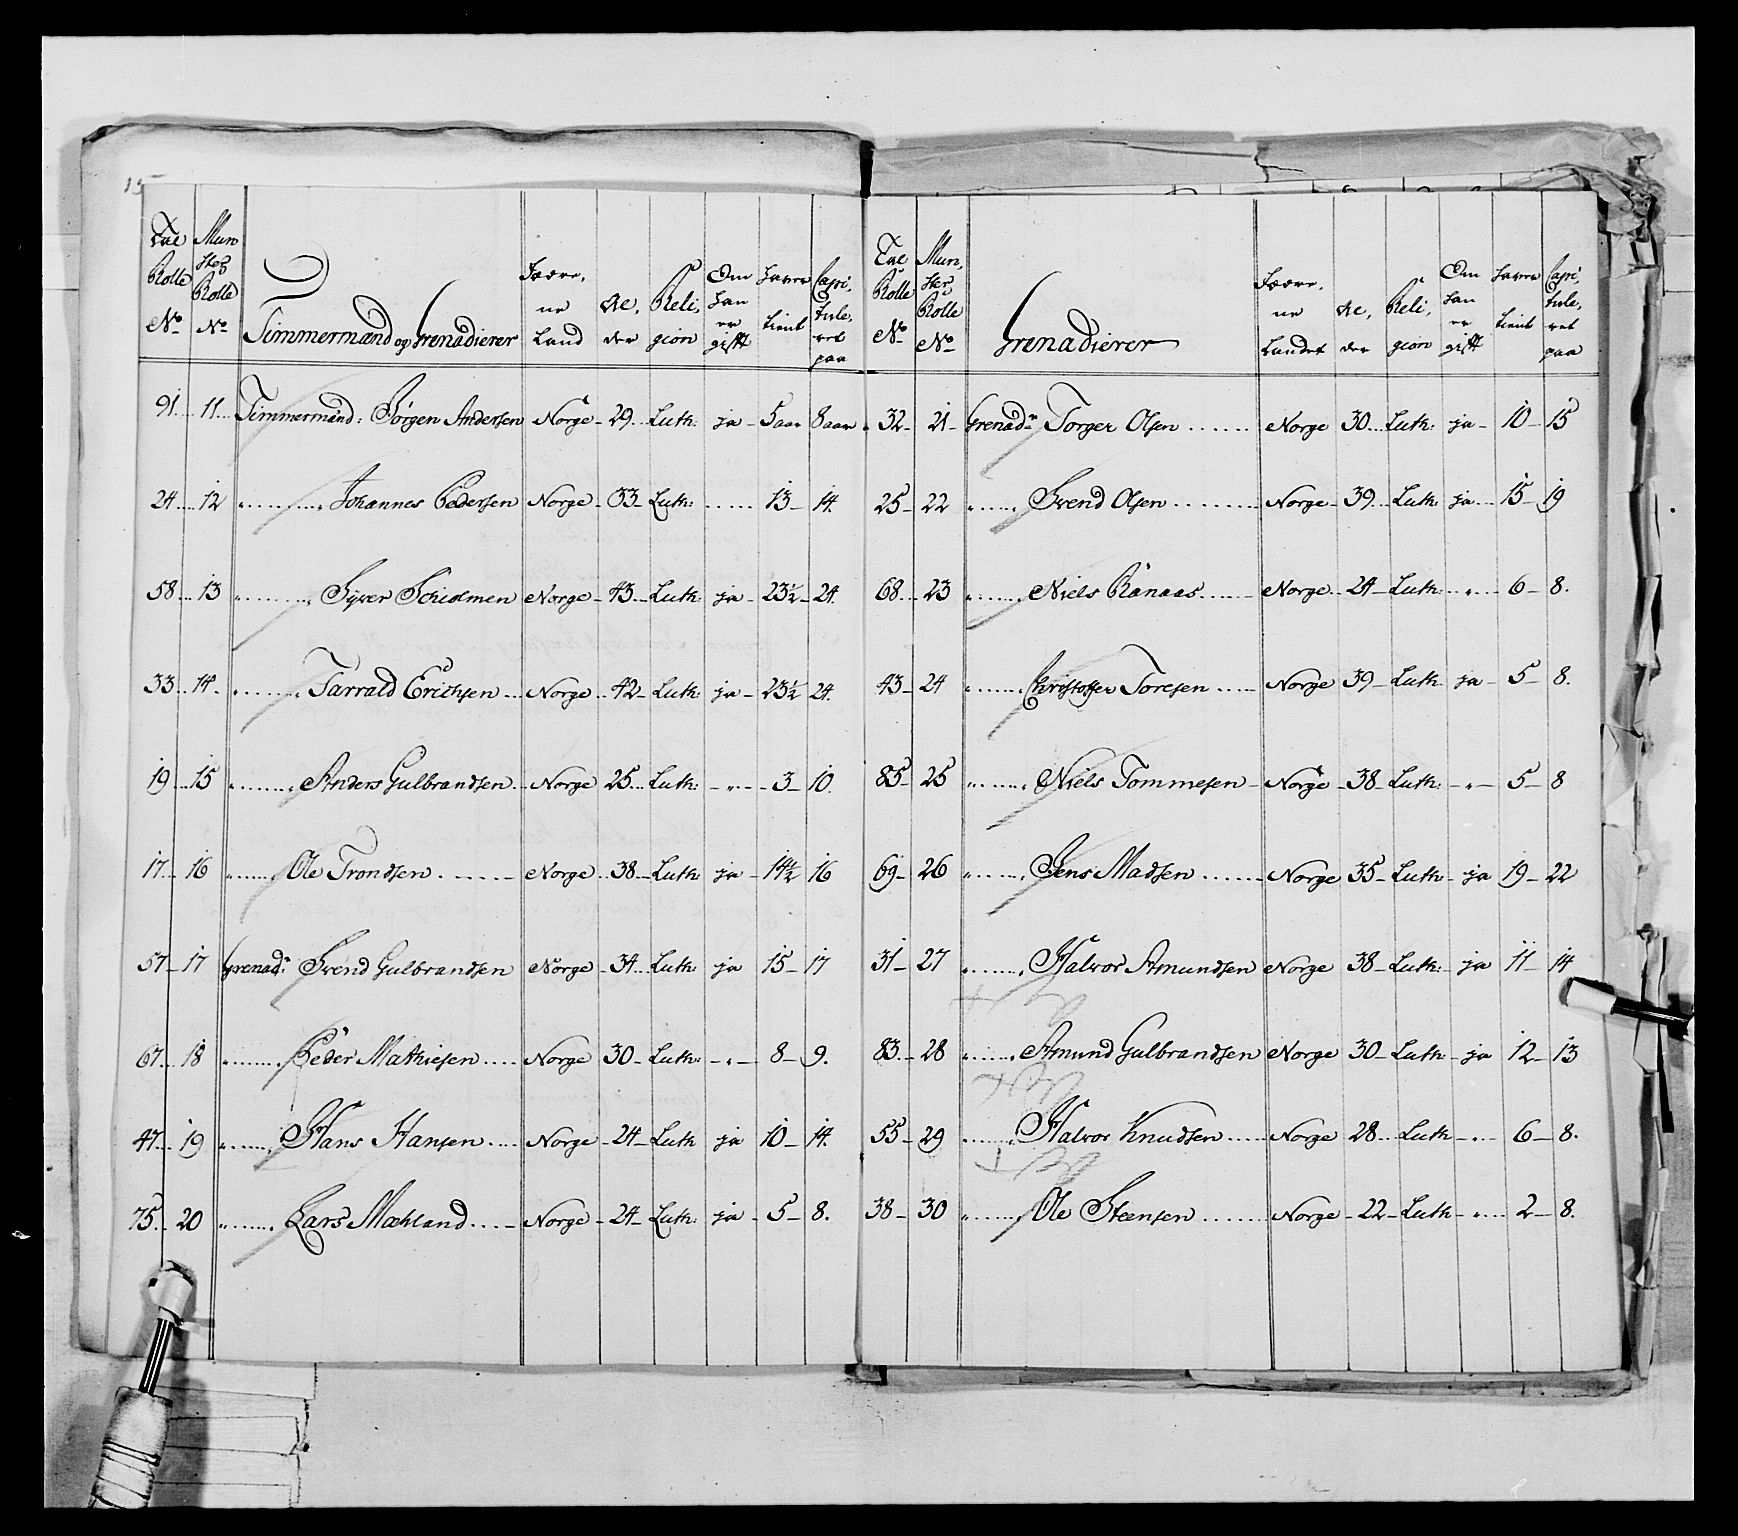 15
Tal Rolle No | Mun ster Rolle No | Timmermænd og Grenadierer | Fædre, ne Land | Al, der | Reli, gion | Om han er gift | haver tient | Capi, tule, ret paa
91 11 Timmermænd: Jörgen Andersen Norge 29 Luth: ja 5 aar 8 aar
24 12 " Johannes Pedersen Norge 33 Luth: 13 14.
58 13 " Syver Norge 43 Luth: ja 23½ 24.
33 14 " Tarrald Erichsen Norge 42 Luth: ja 23½ 24.
19 15 " Anders Gulbrandsen Norge 25 Luth: " 3 10.
17 16 " Ole Trondsen Norge 38 Luth ja 14½ 16
57 17 Grenadr: Svend Gulbrandsen Norge 34 Luth: ja 15 17
67 18 " Peder Mathiesen Norge 30 Luth: " 8 9.
47 19 " Hans Hansen Norge 24 Luth ja 10 14.
75 20 " Lars Mæhland Norge 24 Luth: ja 5 8.
Tal Rolle No | Mun, ster Rolle No | Grenadierer | Fædre, ne Landet | Al, der | Reli, gion | Om han er gift | haver tient | Capi, tule, ret paa
32 21 Grenadr Torger Olsen Norge 30 Luth: ja 10 15
25 22 " Svend Olsen Norge 39 Luth: ja 15 19
68 23 " Niels Rånaas Norge 24 Luth: " 6 8.
43 24 " Christoffer Toresen Norge 39 Luth ja 5 8.
85 25 " Niels Tommesen Norge 38 Luth: " 5 8
69 26 " Jens Madsen Norge 35 Luth ja 19 22
31 27 " Halvor Amundsen Norge 38 Luth: ja 11 14
83 28 " Amund Gulbrandsen Norge 30 Luth ja 12 13
55 29 " Halvor Knudsen Norge 28 Luth " 6 8.
38 30 " Ole Steensen Norge 22 Luth " 2 8.